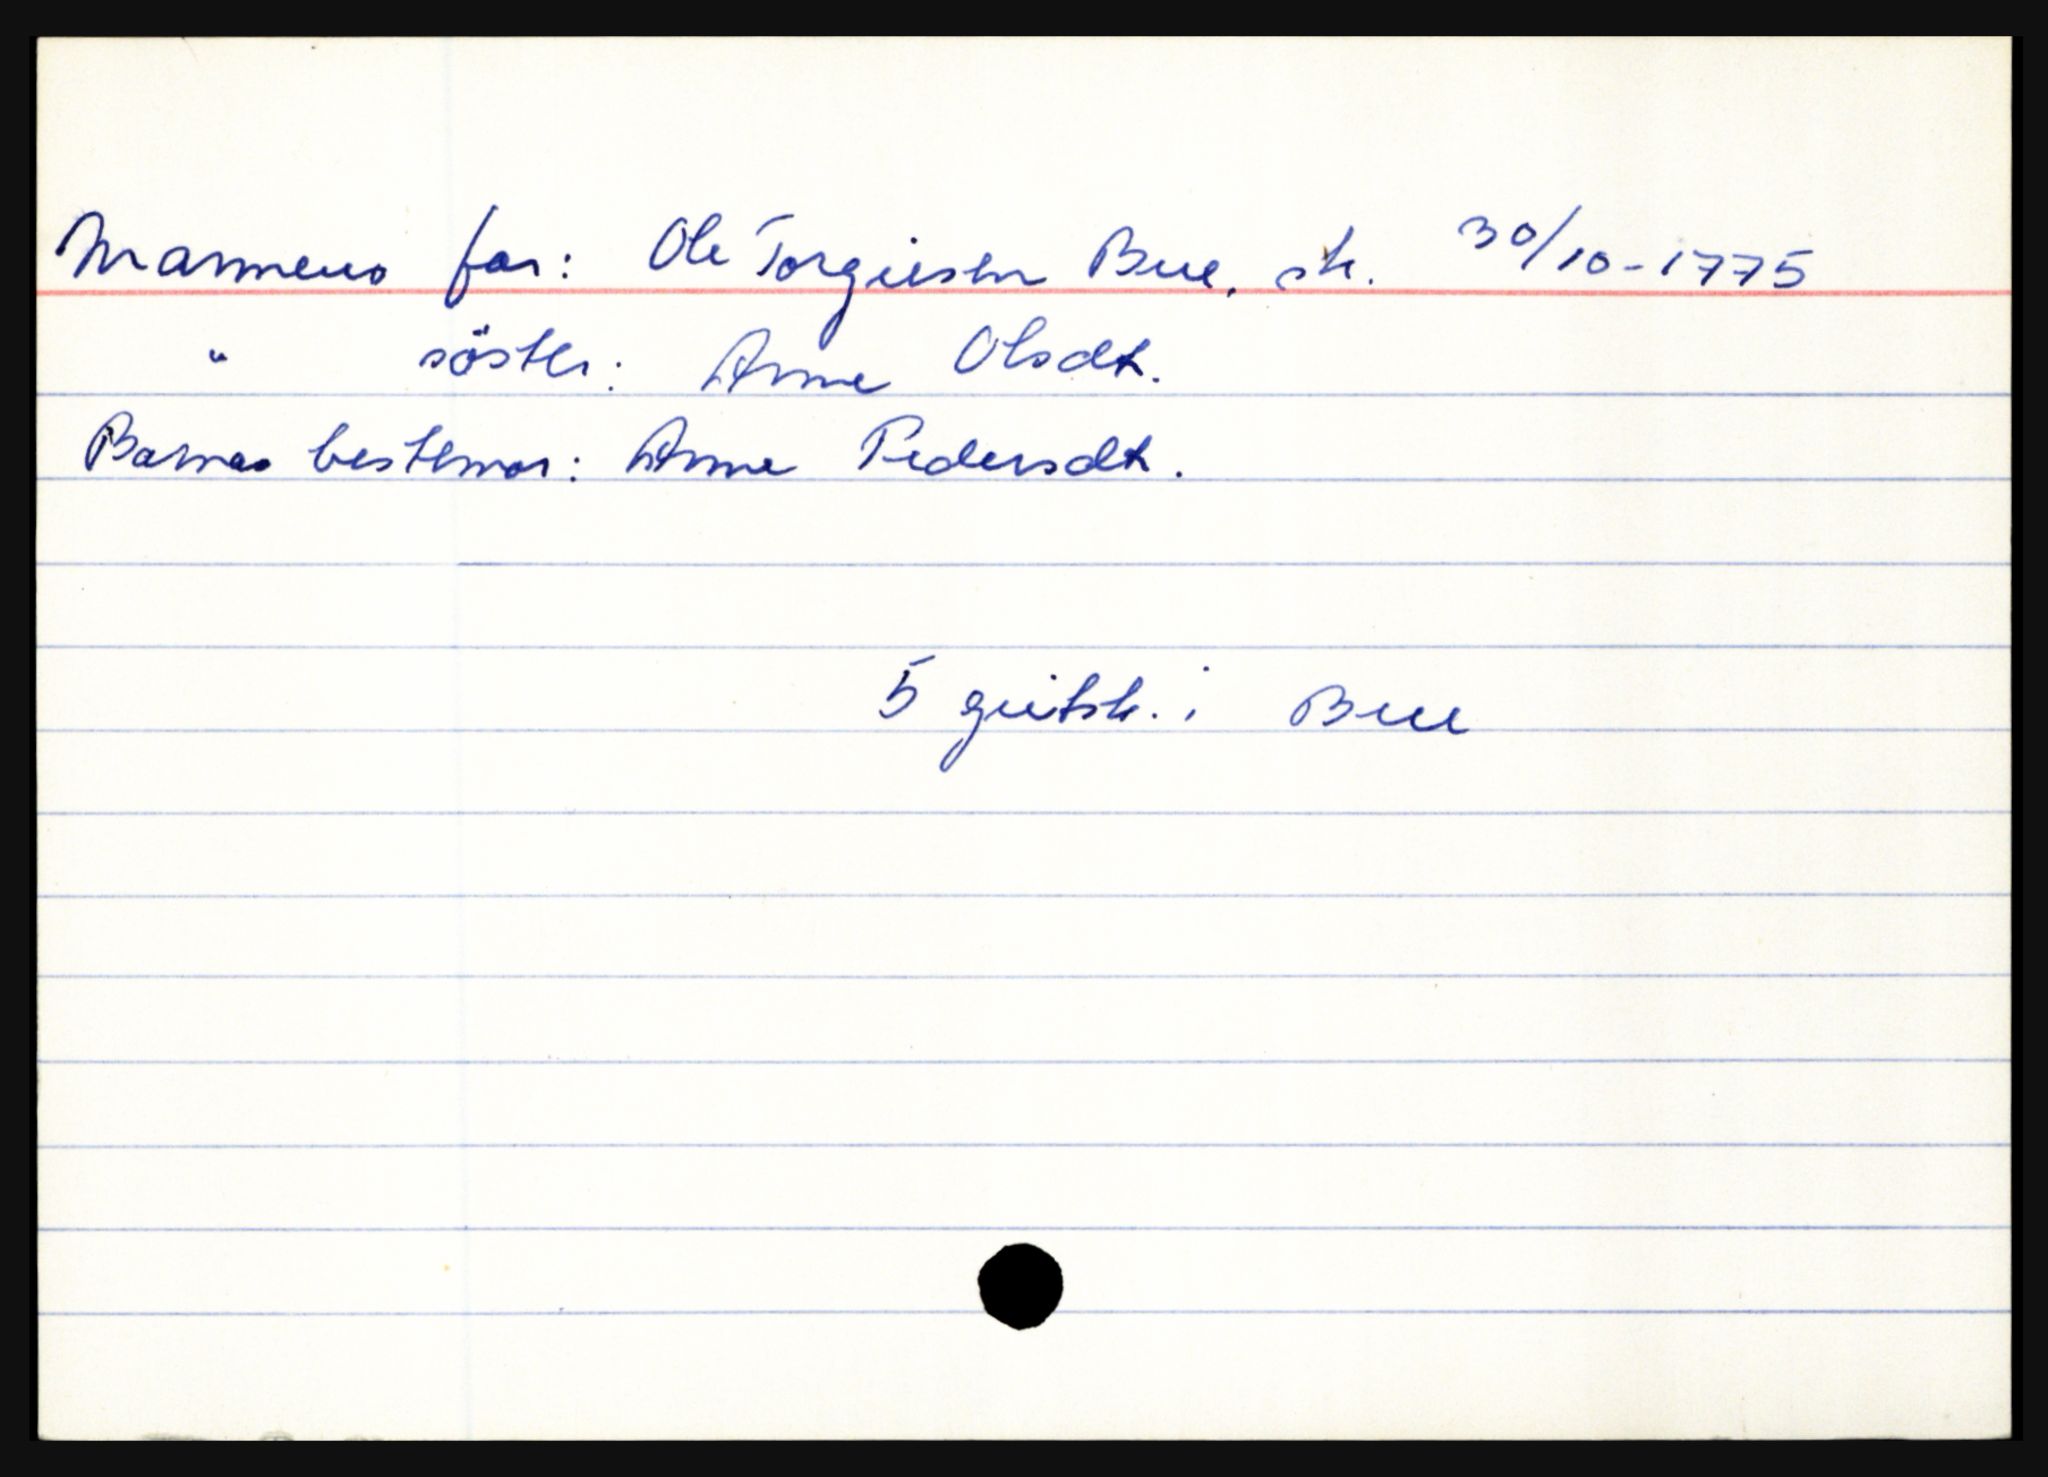 Mannens far: Ole Torgiesen Bue, sk. 30/10-1775
" söster: Anne Olsdt.
Barnas bestemor: Anne Pedersdt.
5 geitsk. i Bue